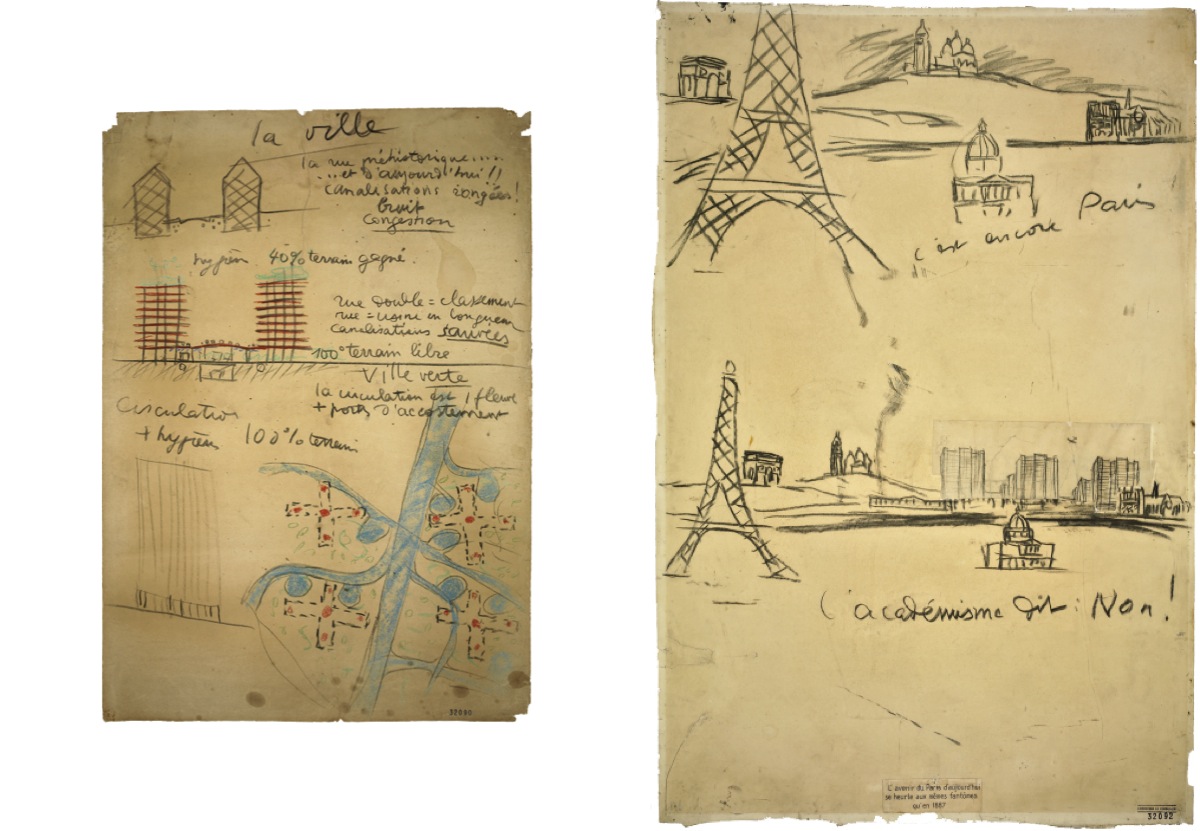 la ville
la rue préhistorique....
...et d'aujourd'hui !!
canalisations rongées!
bruit
congestion
hygièn 40% terrain gagné.
rue double = classement
rue = usine en longueur
canalisations sauvées
100% terrain libre
Ville verte
la circulation est 1 fleuve
+ ports d'accostement
Circulation
+ hygièn 100% terrain
32090
c'est encore Paris
L'académisme dit: Non!
L'avenir du Paris d'aujourd'hui
se heurte aux mêmes fantômes
qu'en 1887
32092